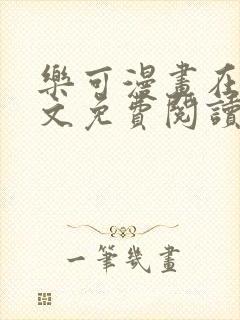 樂可漫畫在
文免費閱讀
一筆幾畫